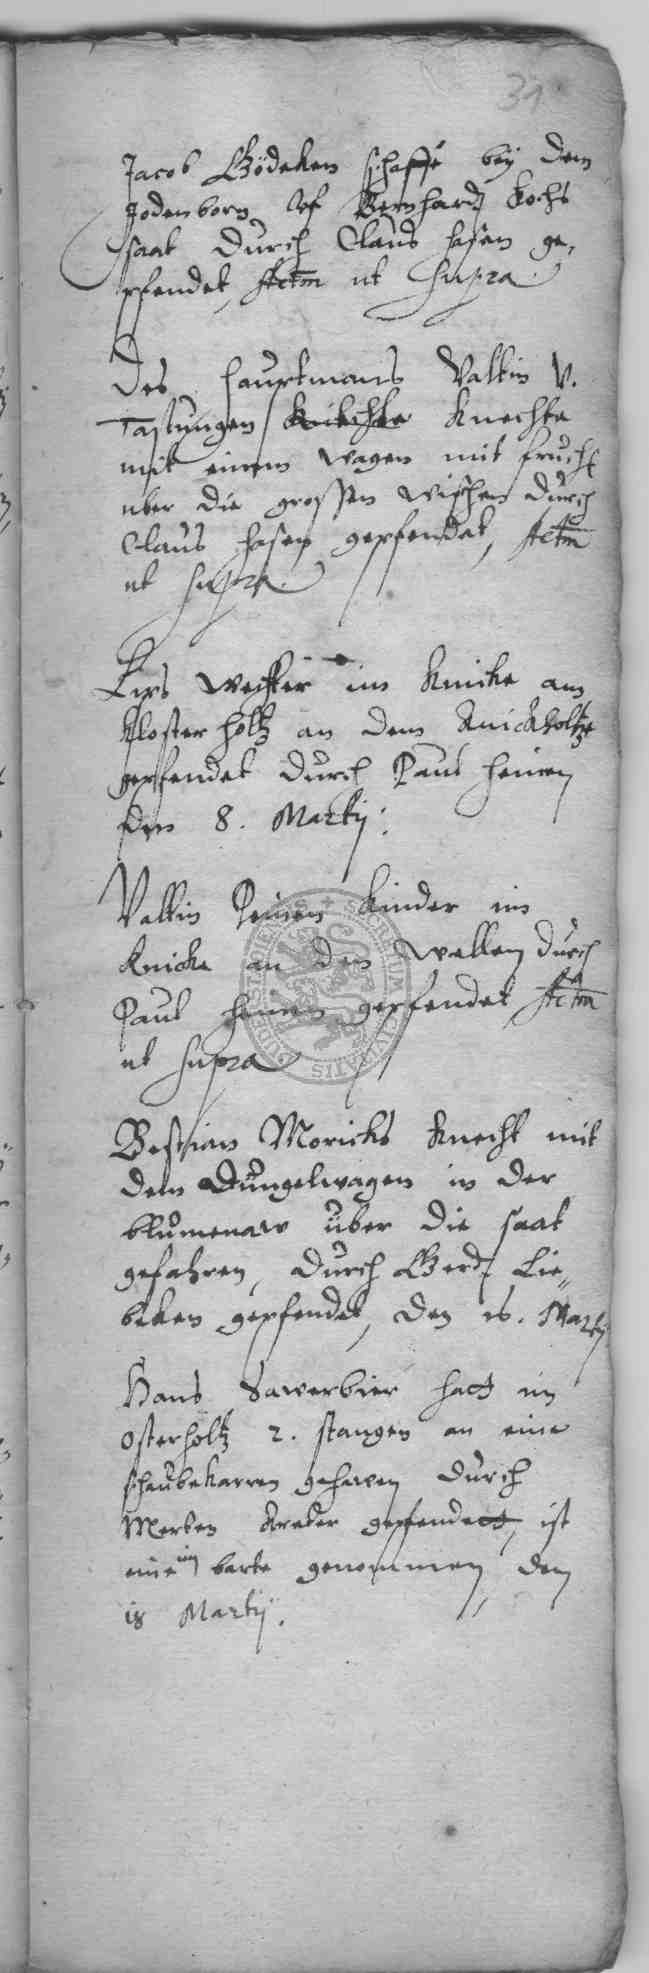 31
Jacob Gödeken schaffe bey dem
Jodenborn Vf Bernhardt Kochs
saat durch Claus hasen ge,
pfendet, Actm ut supra
Des hauptmans Valtin v.
Tastungen Knechte Knechte
mit einem wagen mit frucht
uber die grossen wischen durch
Claus hasen gepfendet, Actm
ut supra
wechter im Knicke am
Kloster holtz an dem Knickholtze
gepfendet durch Paul heinen
den 8. Martij.
Valtin Kinder im
Knicke an den wellen durch
Paul heinen gepfendet Actm
ut supra
Bestian Moricks Knecht mit
dem Düngelwagen in der
blumenaw uber die saat
gefahren, durch Gerdt Lie,,
beken gepfendet, den 15. Martij
Hans Sawerbier hatt im
Osterholtz 2. stangen an eine
schaubekarren gehawen durch
Merten gepfendett, ist
eine im barte genommen, den
18 Martij.
SECRETUM CIVITATIS DUDERSTADIENSIS